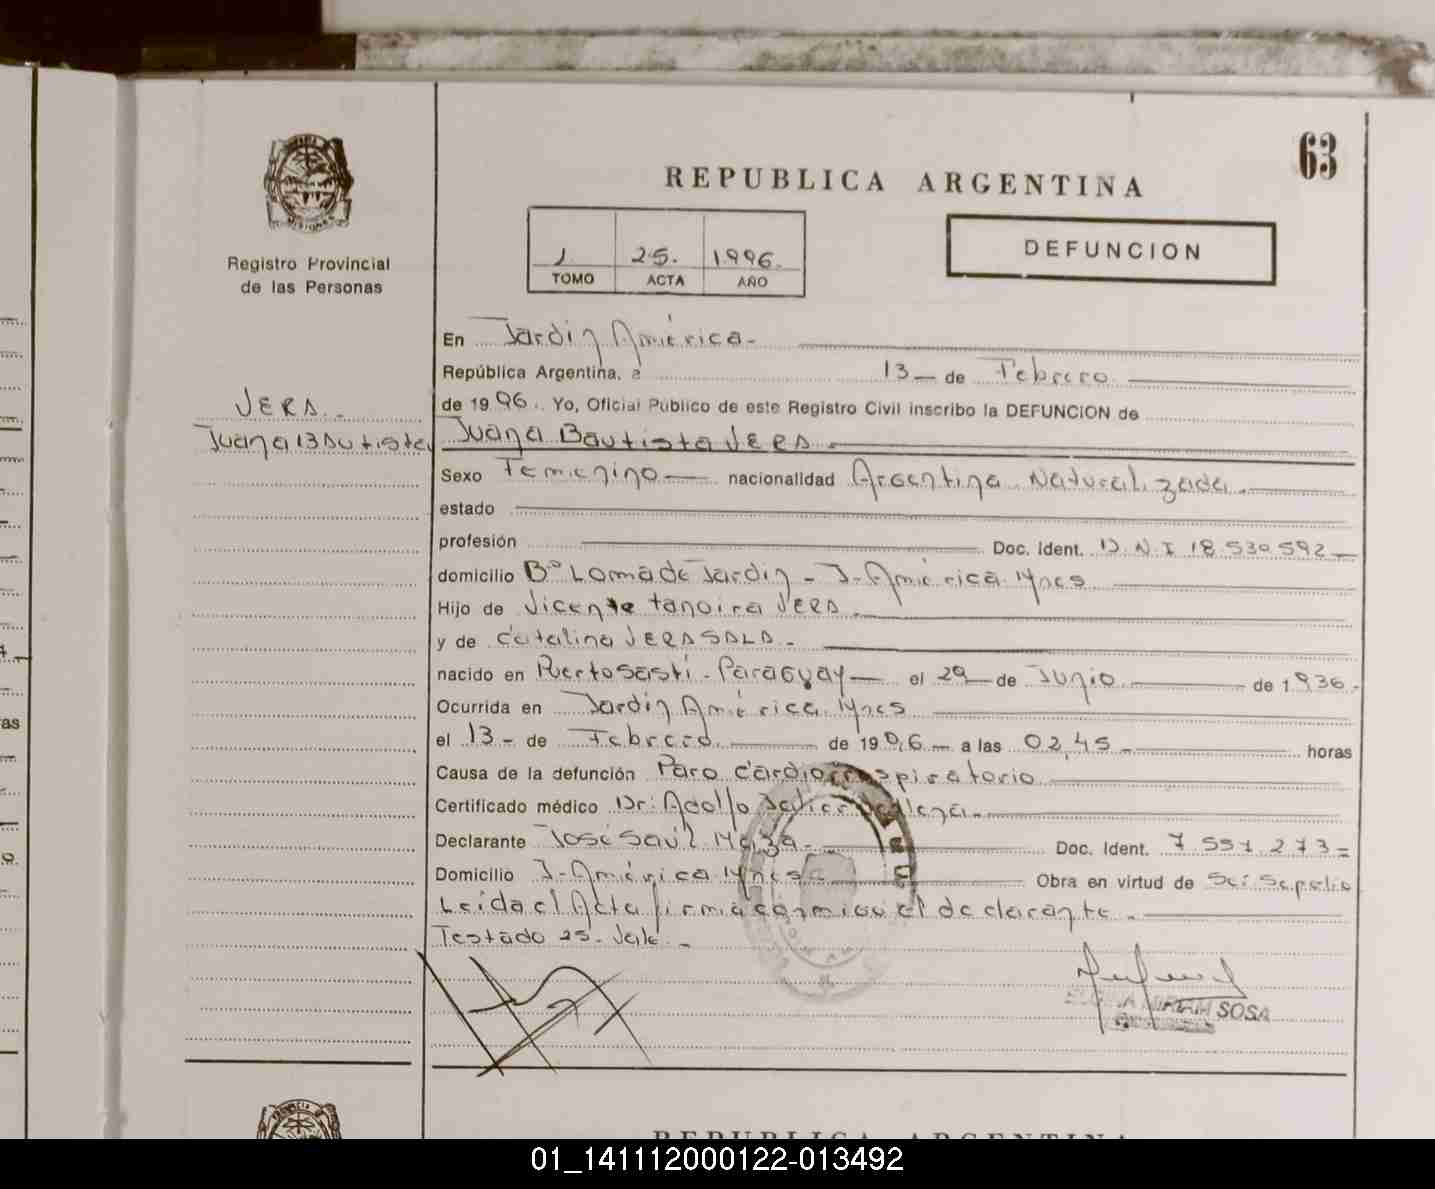 63
REPUBLICA ARGENTINA
Registro Provincial
de las Personas
1 25. 1996.
TOMO ACTA AÑO
DEFUNCION
En Jardin América.-
República Argentina, a 13 - de Febrero
VERA.-
Juana Bautista
de 1996. Yo, Oficial Público de este Registro Civil inscribo la DEFUNCION de
Juana Bautista VERA.-
Sexo Femenino nacionalidad Argentina Naturalizada.
estado
profesión Doc. Ident. D.N.I 18.530.592
domicilio Bº Loma de Jardin - J. América Mnes
Hijo de Vicente Tanoira VERA.
y de Catalina VERA SALA.-
nacido en Puerto Sastí - Paraguay el 29 de Junio de 1.936.-
Ocurrida en Jardin América Mnes
el 13 - de Febrero de 1996 a las 02,45 - horas
Causa de la defunción Paro Cardiorrespiratorio
Certificado médico Dr: Adolfo
Declarante José Saúl Doc. Ident. 7.557.273=
Domicilio J- América Mnes Obra en virtud de Sepelio
Leida el Acta firma conmigo el declarante.-
Testado 25- Vale.-
SOSA
REPUBLICA ARGENTINA
01_141112000122-013492